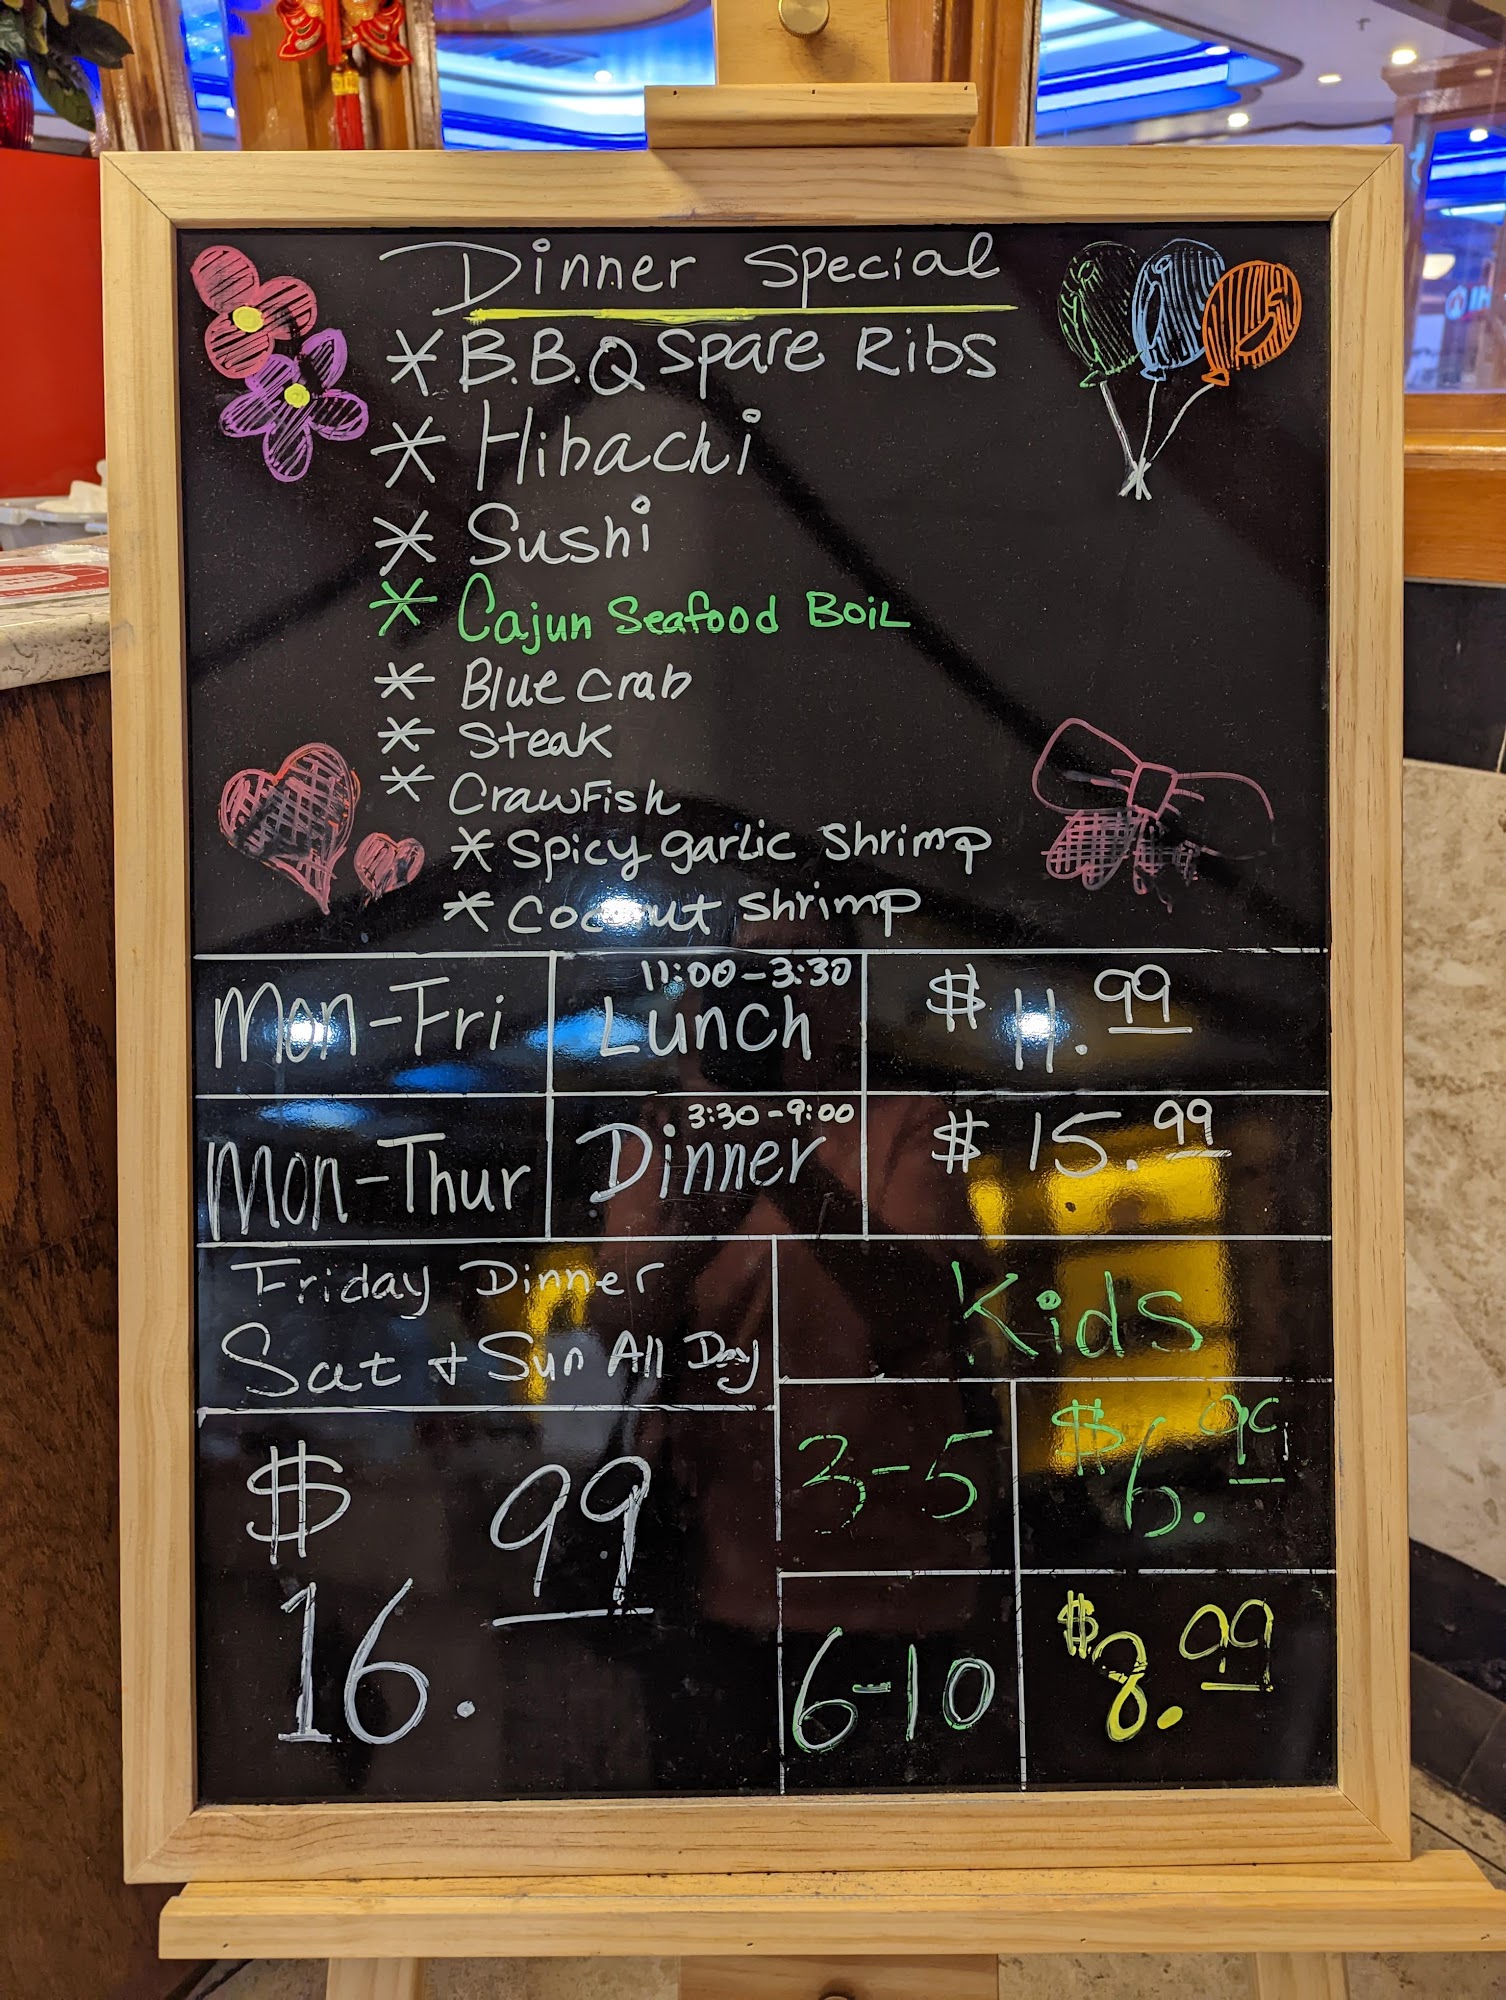 Dinner Special
* B.B.Q Spare Ribs
* Hibachi
* Sushi
* Cajun Seafood Boil
* Blue Crab
* Steak
* Crawfish
* Spicy garlic Shrimp
* Coconut Shrimp
Mon-Fri
11:00-3:30
Lunch
$11.99
Mon-Thur
3:30-9:00
Dinner
$15.99
Friday Dinner
Sat & Sun All Day
$16.99
Kids
3-5
$6.99
6-10
$8.99